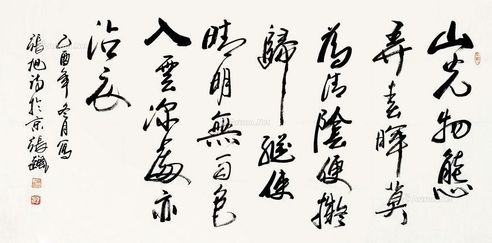 山光物態
弄春暉莫
為清陰便擬
歸縱使
晴明無雨色
入雲深處亦
沾衣
乙酉年冬月寫
張旭詩於京張